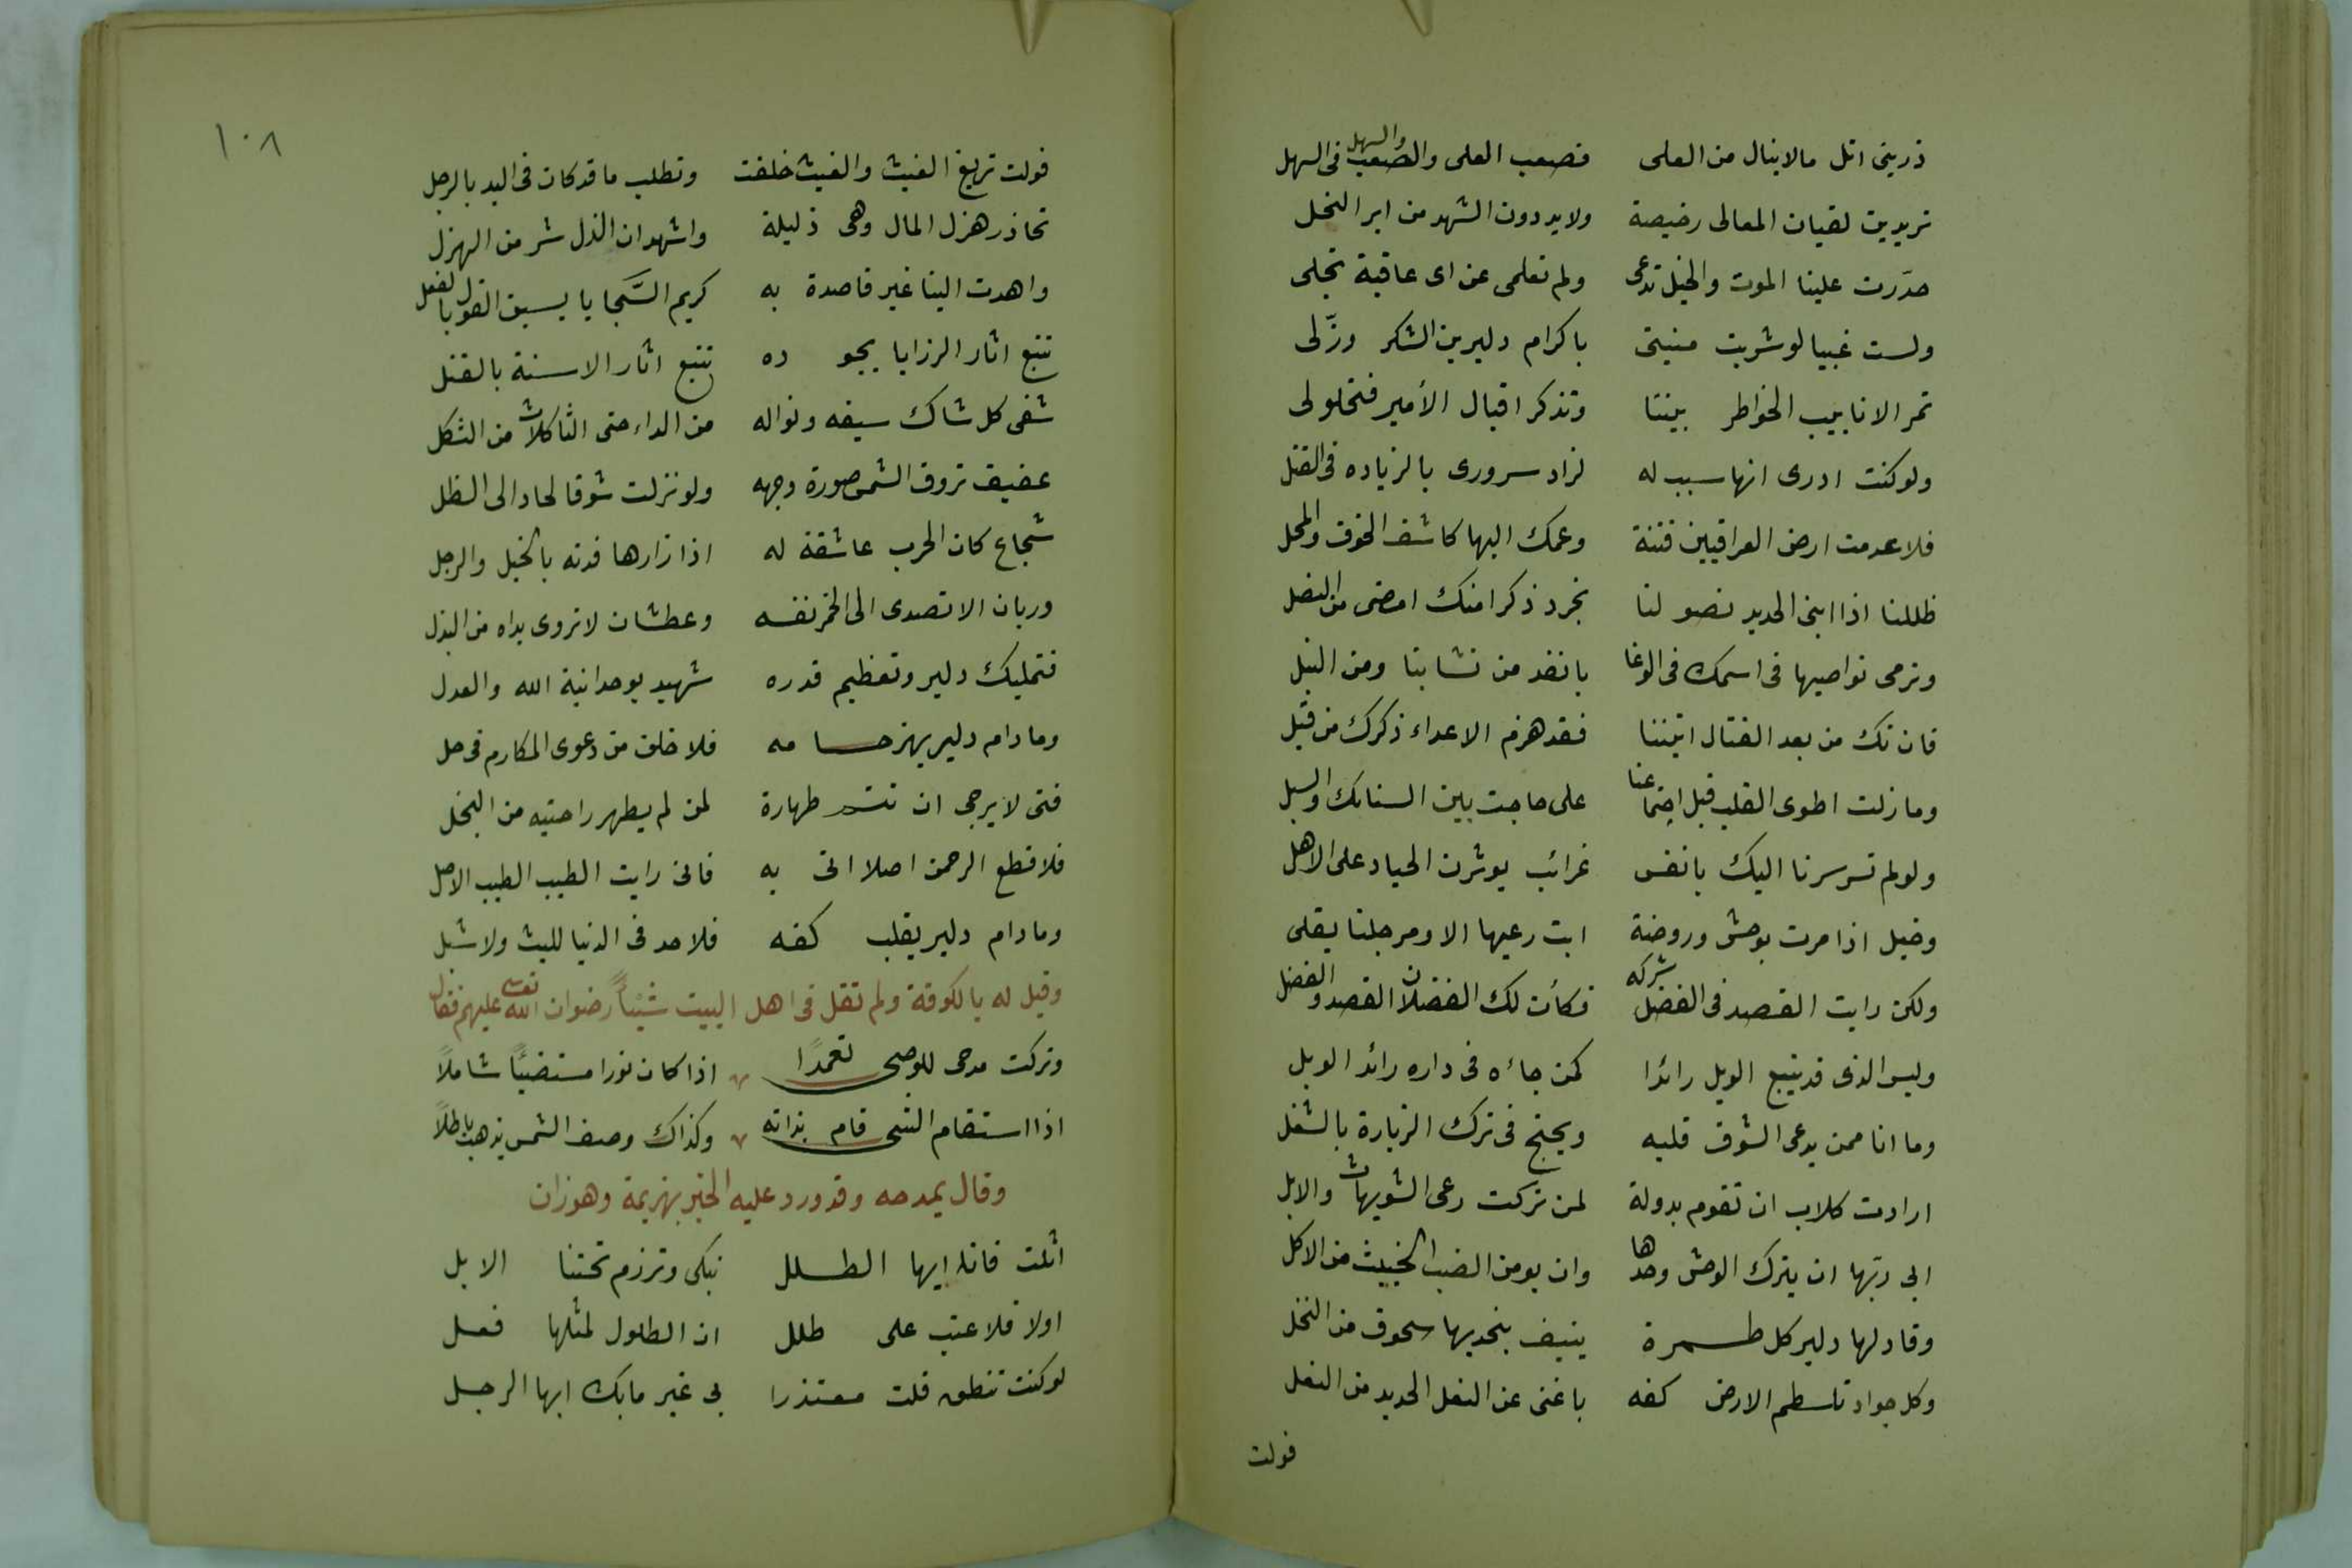 ذرينى انل مالا ينال من العلى فصعب العلى والصعب والسهل فى السهل
تريدين لقيان المعالى رخيصة ولابد دون الشهد من ابر النحل
حذرت علينا الموت والخيل تدعى ولم تعلمى عن اى عاقبة تجلى
ولست غبيا لو شريت منيتى باكرام دلير بن الشكر وزّلى
تمر الانابيب الخواطر بيننا وتذكر اقبال الأمير فتحلولى
ولو كنت ادرى انها سبب له لزاد سرورى بالزياده فى القتل
فلا عدمت ارض العراقين فتنة دعتك اليها كاشف الخوف والمحل
ظللنا اذا انبى الحديد نصولنا نجرد ذكرا منك امضى من النصل
ونرمى نواصيها فى اسمك فى الوغا بانفذ من نشابنا ومن النبل
فان تك من بعد القتال اتيتنا فقد هزم الاعداء ذكرك من قبل
وما زلت اطوى القلب قبل اجتماعنا على حاجت بين السنابك والسبل
ولو لم تسر سرنا اليك بانفس غرائب يوثرن الجياد على الاهل
وخيل اذا مرت بوحش وروضة ابت رعيها الا ومرجلنا يغلى
ولكن رايت القصد فى الفضل شركه فكان لك الفضلان القصد والفضل
وليس الذى قد يتبع الوبل رائدا كمن جاءه فى داره رائد الوبل
وما انا ممن يدعى الشوق قلبه ويحتج فى ترك الزيارة بالشغل
ارادت كلاب ان تقوم بدولة لمن تركت رعى الشويهات والابل
ابى ربها ان يترك الوحش وحدها وان يومن الضب الخبيث من الاكل
وقاد لها دلير كل طمرة ينيف بخديها سحوق من النخل
وكل جواد تلطم الارض كفه باغنى عن النعل الحديد من النعل
فولت
١٠٨
فولت تريغ الغيث والغيث خلفت وتطلب ما قد كان فى اليد بالرجل
تحاذر هزل المال وهى ذليلة واشهد ان الذل شر من الهزل
واهدت الينا غير قاصدة به كريم السّجايا يسبق القول بالفعل
تتبع اثار الرزايا بجوده تتبع اثار الاسنة بالفتل
شفى كل شاك سيفه ونواله من الداء حتى الثاكلات من الثكل
عفيف تروق الشمس صورة وجهه ولو نزلت شوقا لحاد الى الظل
شجاع كان الحرب عاشقة له اذا زارها فدته بالخيل والرجل
وريان لا تصدى الى الخمر نفسه وعطشان لا تروى يداه من البذل
فتمليك دلير وتعظيم قدره شهيد بوحدانية الله والعدل
وما دام دلير يهز حسامه فلا خلق من دعوى المكارم فى حل
فتى لا يرجى ان تتم طهارة لمن لم يطهر راحتيه من البخل
فلا قطع الرحمن اصلا اتى به فانى رايت الطيب الطيب الاصل
وما دام دلير يقلب كفه فلا حد فى الدنيا لليث ولا شبل
وقيل له بالكوفة ولم تقل فى اهل البيت شيئاً رضوان الله تعالى عليهم فقال
وتركت مدحى للوصى تعمدًا اذا كان نورا مستضيئًا شاملاً
اذا استقام الشى قام بذاته وكذاك وصف الشمس يذهب باطلاً
وقال يمدحه وقد ورد عليه الخبر بهزيمة وهوزان
اثلت فانه ايها الطلل نبكى وترزم تحتنا الابل
اولا فلا عتب على طلل ان الطلول لمثلها فعل
لو كنت تنطق قلت معتذرا بى غير مابك ايها الرجل